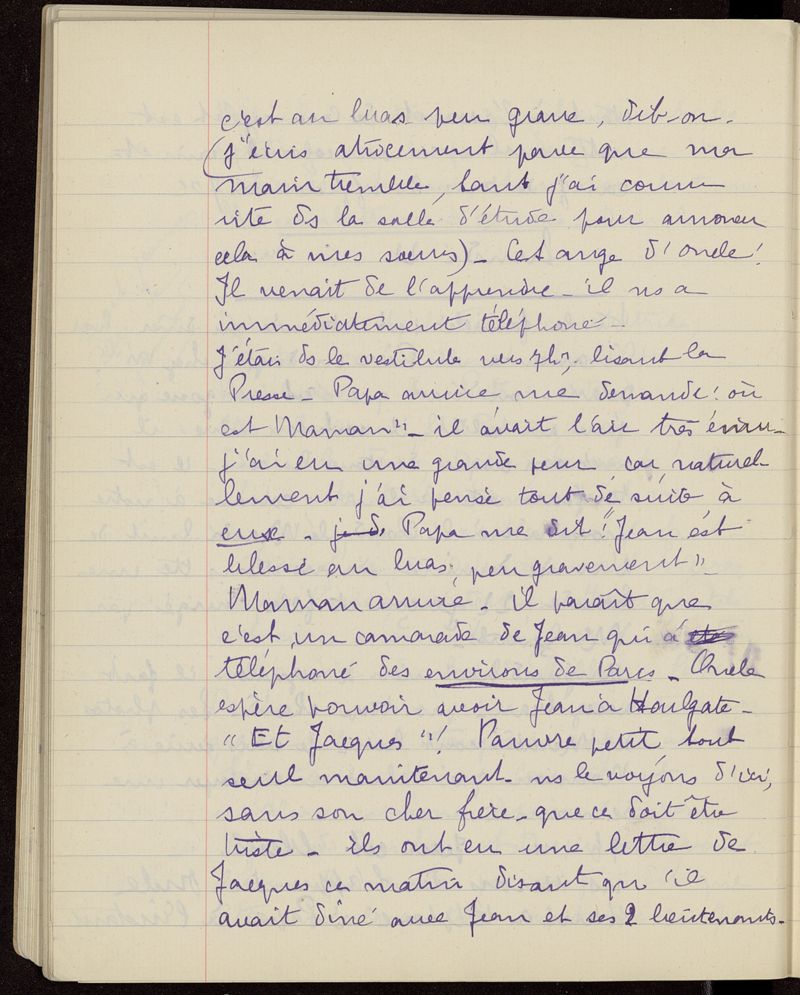 c'est au bras peu grave, dit-on.
(J'écris atrocement parce que ma
main tremble, tant j'ai couru
vite ds la salle d'étude pour annoncer
cela à mes sœurs) - Cet ange d'oncle!
Il venait de l'apprendre - il ns a
immédiatement téléphoné -
J'étais ds le vestibule vers 7h, lisant la
Presse - Papa arrive me demande: où
est Maman" - il avait l'air très ému -
j'ai eu une grande peur car naturel-
lement j'ai pensé tout de suite à
eux - Papa me dit "Jean est
blessé au bras, peu gravement"
Maman arrive - il paraît que
c'est un camarade de Jean qui a
téléphoné des environs de Paris - Oncle
espère pouvoir avoir Jean à Houlgate -
"Et Jacques"! Pauvre petit, tout
seul maintenant - ns le voyons d'ici,
sans son cher frère - que ce doit être
triste - ils ont eu une lettre de
Jacques ce matin disant qu'il
avait dîné avec Jean et ses 2 lieutenants -